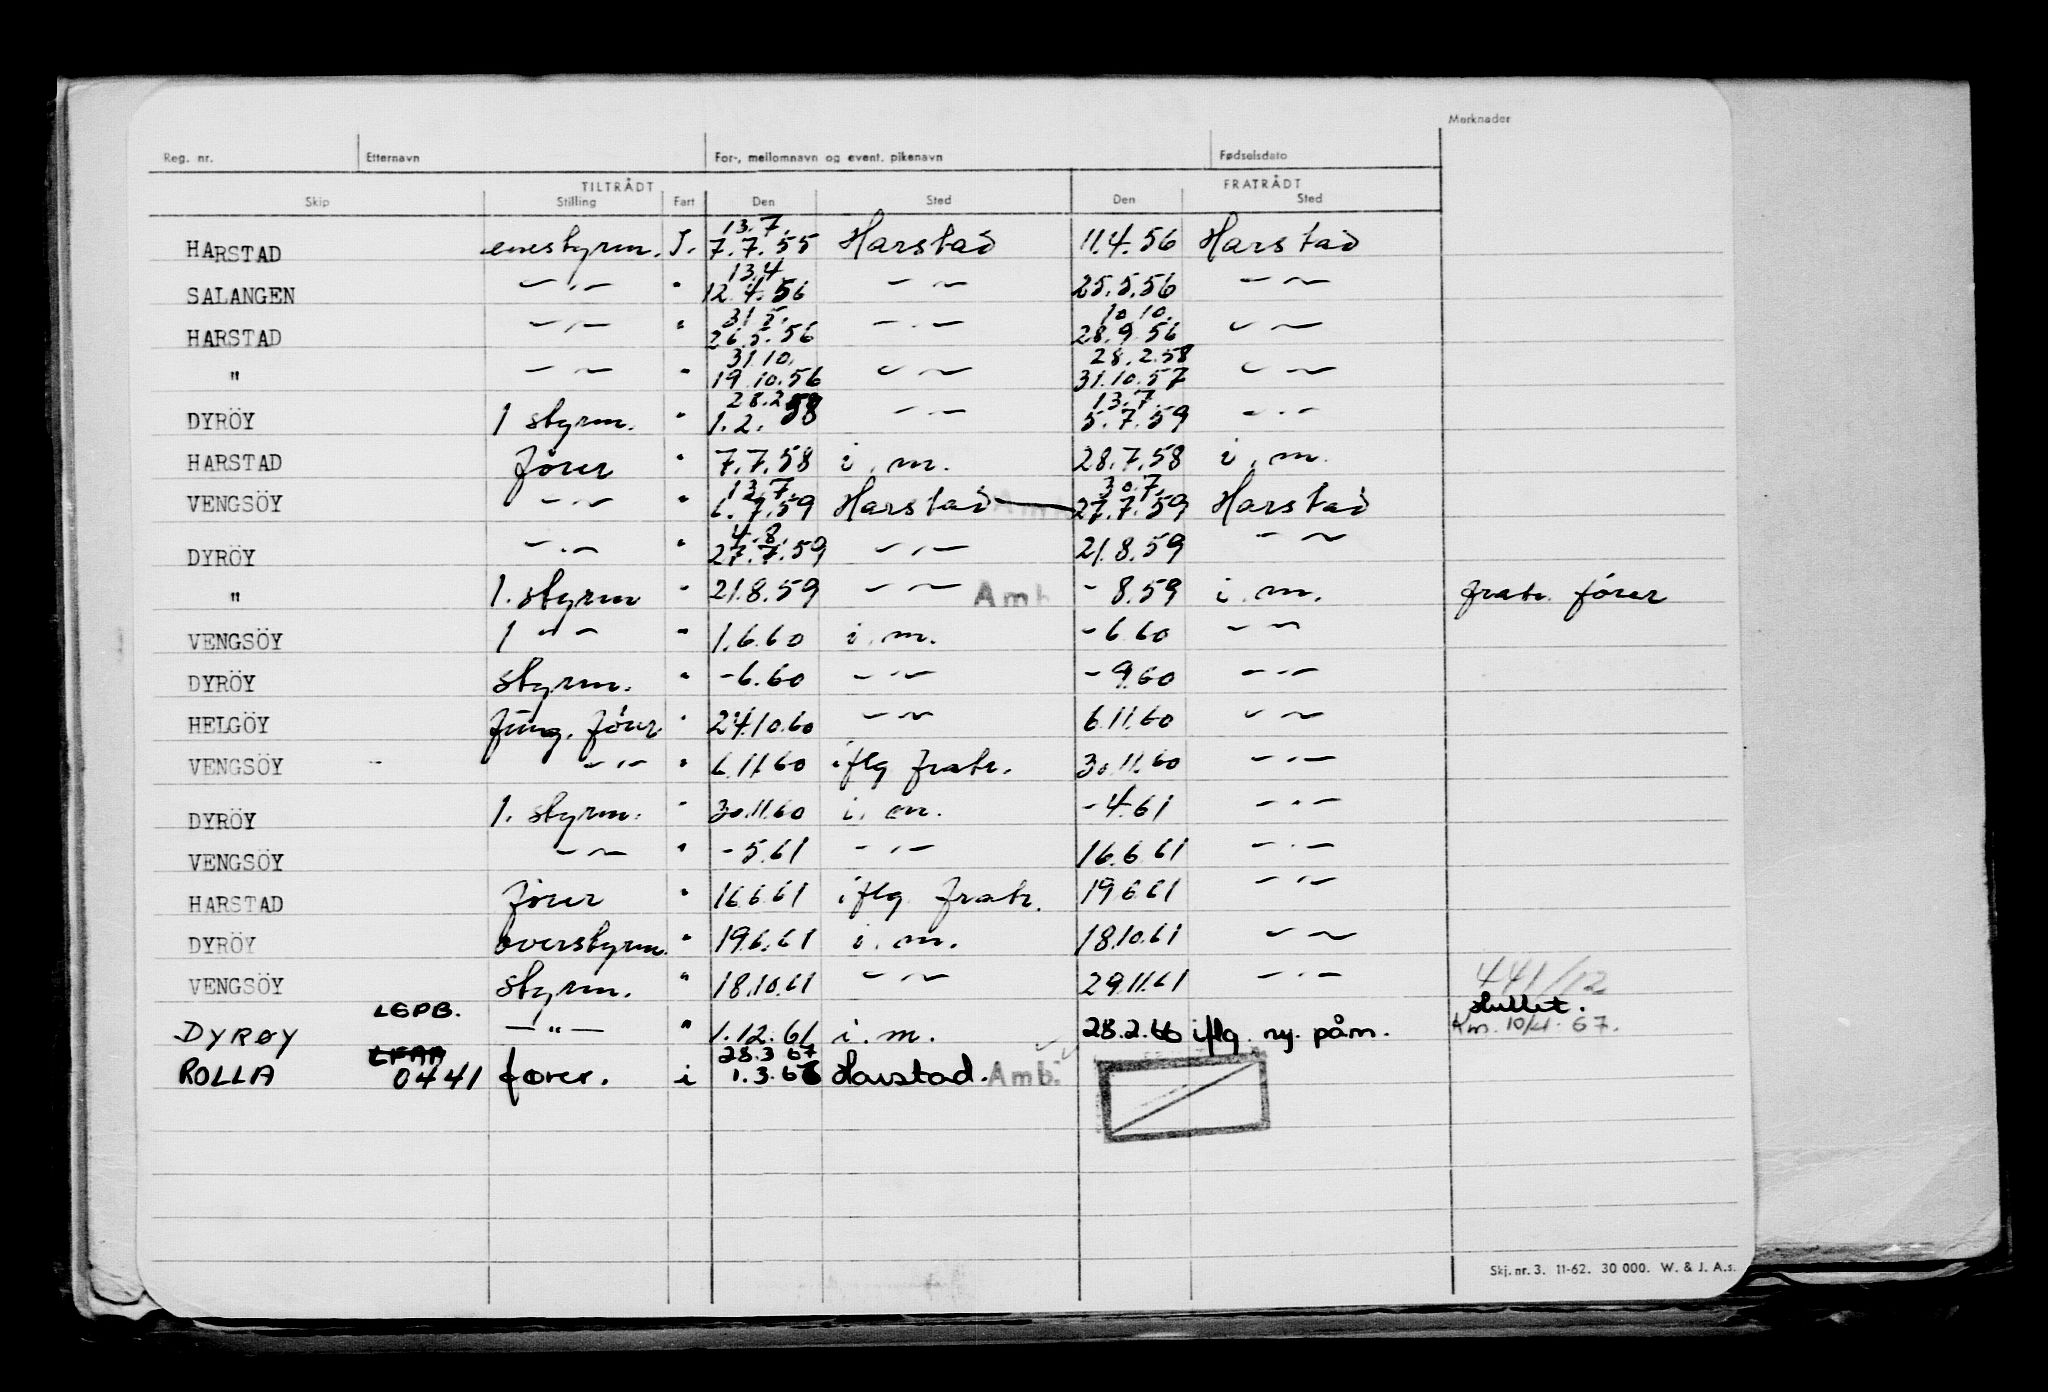 Merknader
Reg. nr. Etternavn For-, mellomnavn og event. pikenavn Fødselsdato
TILTRÅDT FRATRÅDT
Skip Stilling Fart Den Sted Den Sted
13.7.
HARSTAD enestyrm. I. 7.7.55 Harstad 11.4.56 Harstad
13.4
SALANGEN — " — " 12.4.56 — " — 25.5.56 — " —
31.5. 10.10.
HARSTAD — " — " 26.5.56 — " — 28.9.56 — " —
31.10. 28.2.58
" — " — " 19.10.56 — " — 31.10.57 — " —
28.2.58 13.7.
DYRÖY 1 styrm. " 1.2.58 — " — 5.7.59 — " —
HARSTAD förer " 7.7.58 i. m. 28.7.58 i. m.
13.7. 30.7.
VENGSÖY — " — " 6.7.59 Harstad — 27.7.59 Harstad
4.8.
DYRÖY — " — " 27.7.59 — " — 21.8.59 — " —
" 1. styrm " 21.8.59 — " — Amb - 8.59 i. m. fratr. förer
VENGSÖY 1 — " — " 1.6.60 i. m. - 6.60 — " —
DYRÖY styrm. " - 6.60 — " — - 9.60 — " —
HELGÖY fung. förer " 24.10.60 — " — 6.11.60 — " —
VENGSÖY — " — " 6.11.60 iflg fratr. 30.11.60 — " —
DYRÖY 1. styrm. " 30.11.60 i. m. - 4.61 — " —
VENGSÖY — " — " - 5.61 — " — 16.6.61 — " —
HARSTAD förer " 16.6.61 iflg fratr. 19.6.61 — " —
DYRÖY overstyrm. " 19.6.61 i. m. 18.10.61 — " —
VENGSÖY styrm. " 18.10.61 — " — 29.11.61 — " — 441/12
LGPB. Hullet.
DYRØY — " — " 1.12.61 i. m. 28.2.66 iflg. ny. påm. Km. 10/4. 67.
LFAA 28.3 67
ROLLA 0441 fører. i 1.3.66 Harstad. Amb.
Skj. nr. 3. 11-62. 30 000. W. & J. A.s.